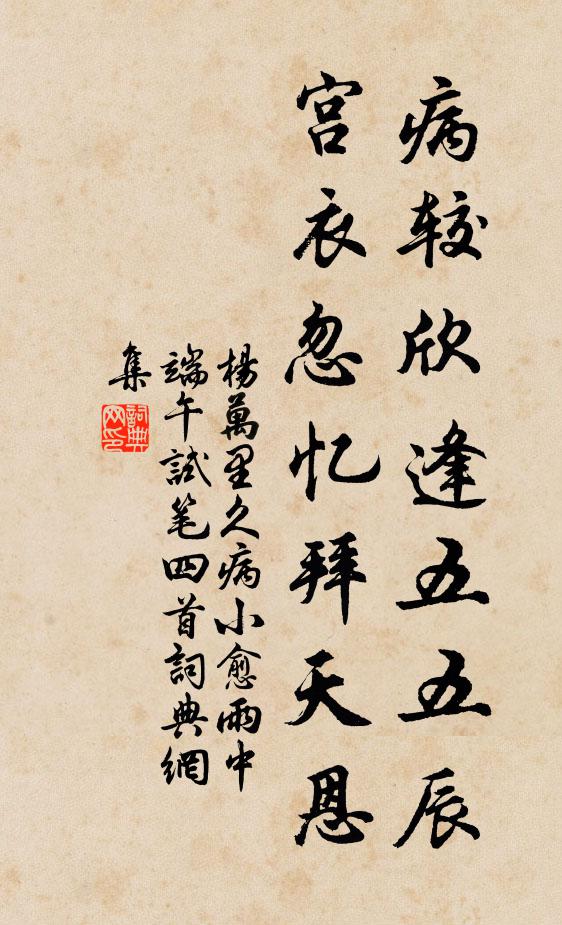 病较欣逢五五辰
宫衣忽忆拜天恩
楊萬里久病小愈雨中
端午試笔四首詞典網
集
詞典
网印